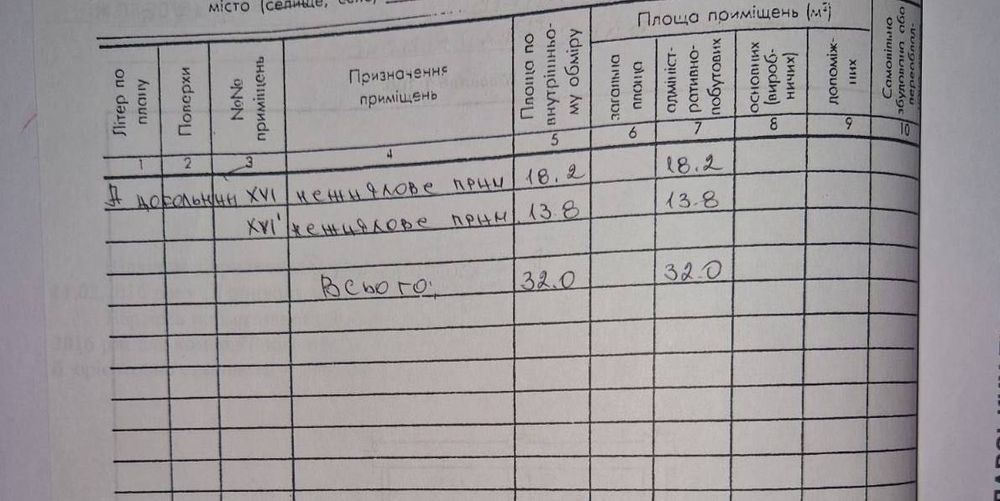 місто (селище, село)
Площа приміщень (м²)
Літер по плану
Поверхи
№№ приміщень
Призначення приміщень
Площа по внутрішньо-му обміру
загальна площа
адмініст-ративно-побутових
основних (вироб-ничих)
допоміж-них
Самовільно збудована або переоблад-
1 2 3 4 5 6 7 8 9 10
А цокольний XVI нежилове прим 18.2 18.2
XVI' нежилове прим. 13.8 13.8
Всього: 32.0 32.0